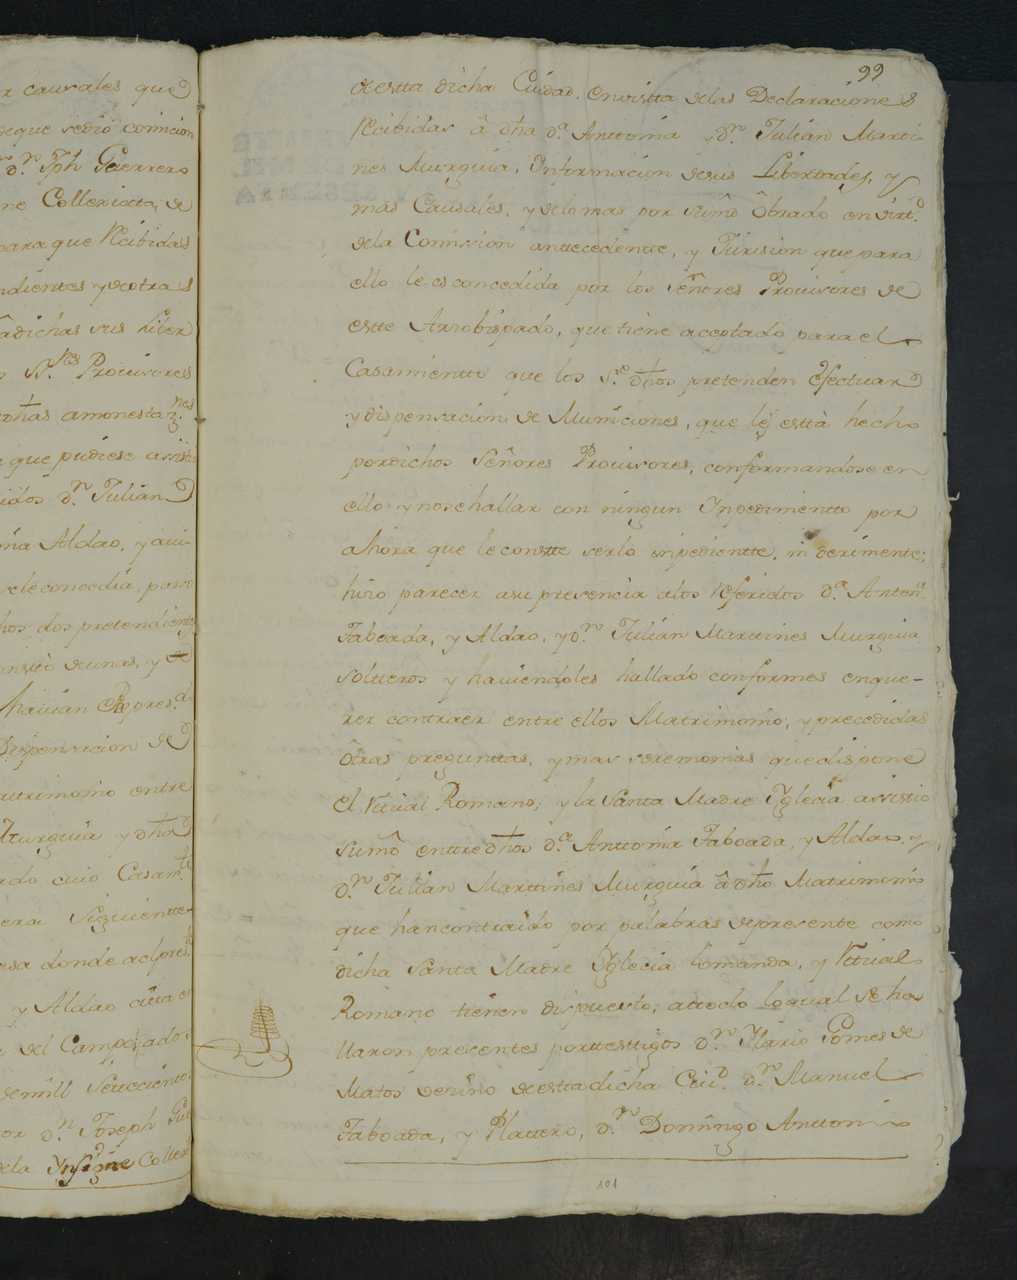 r caurales que
deque sedio comicion
Dn. Jph Guerrero
ne Collexiatta, de
para que Recibidas
ndientes y de otras
â dichas sus liber
Sres. Provisores
dhas amonestaznes
que pudiese assisti
idos Dn. Julian
ña Aldao, y aui-
se le concedia, paso
hos dos pretendientes
de unas, y de
havian Expresdo
Dispensacion de
attrimonio entre
Murguia y dha
rdo cuio Casamto
era Siguientte
esa donde
y Aldao
del Campo,
de mill Settecientos
or Dn. Joseph Gue
dela Ynsigne Colle
99
de estta dicha Ciudad. en vistta de las Declaraciones
Recibidas â dha Da. Anttonia Dn. Julian Marti-
nes Murguia, Ynformacion de sus Libertades, y
mas Causales, y de lo mas por Su md Obrado en Virtd.
de la Comission anttecedentte, y Jurision que para
ello le es concedida por los Señores Provisores de
estte Arzobispado, que tiene aceptado para el
Casamientto que los Sre. dhos pretenden Efectuar
y dispensacion de Municiones, que les està hecho
por dichos Señores Provisores, conformandose en
ello y no se hallar con ningun Ynpedimentto por
ahora que le constte serlo inpedientte, ni derimente;
hizo parecer a su presencia a los Referidos Da. Antona
Taboada, y Aldao, y Dn. Julian Marttines Murguia
soltteros y haviendoles hallado conformes en que-
rer contraer entre ellos Matrimonio, y precedidas
Otras pregunttas, y mas seremonias que dispone
El Ritual Romano; y la Santa Madre Yglecia assistio
su md enttre dhos Da. Anttonia Taboada, y Aldao, y
Dn. Julian Marttines Murguia â dho Matrimonio
que han contraido por palabras de precente como
dicha Santa Madre Yglecia lo manda, y Ritual
Romano tienen dispuesto, a ttodo lo qual se ha
llaron precentes por ttesttigos Dn. Ylario Gomes de
Matos Vezino de estta dicha Ciud. Dn. Manuel
Taboada, y Plattero, Dn. Domingo Anttonio
101